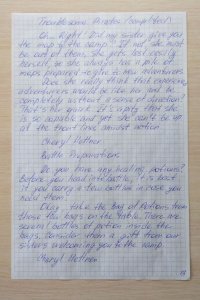 Troublesome Pirates Completed!
Oh. Right! Did my sister give
you the map to the camp? If not, she must
be out of them. She gets lost easily
herself, so she always has a pile of
maps prepared to give to new adventurers.
Does she really think that experienced
adventurers would be like her, and be
completely without a sense of direction?
That's the grace. It's a pity that she
is so capable and yet she can't be up
at the front lines amidst action.
Cheryl Hoffner
Battle Preparations
Do you have any healing potions?
Before you head into battle, it is best
if you carry a few bottles in case you
need them.
Okay, take the bag of Potions from
those tiny bags on the table. There are
several bottles of potion inside the
bags. Consider them a gift from our
sisters welcoming you to the camp.
Cheryl Hoffner